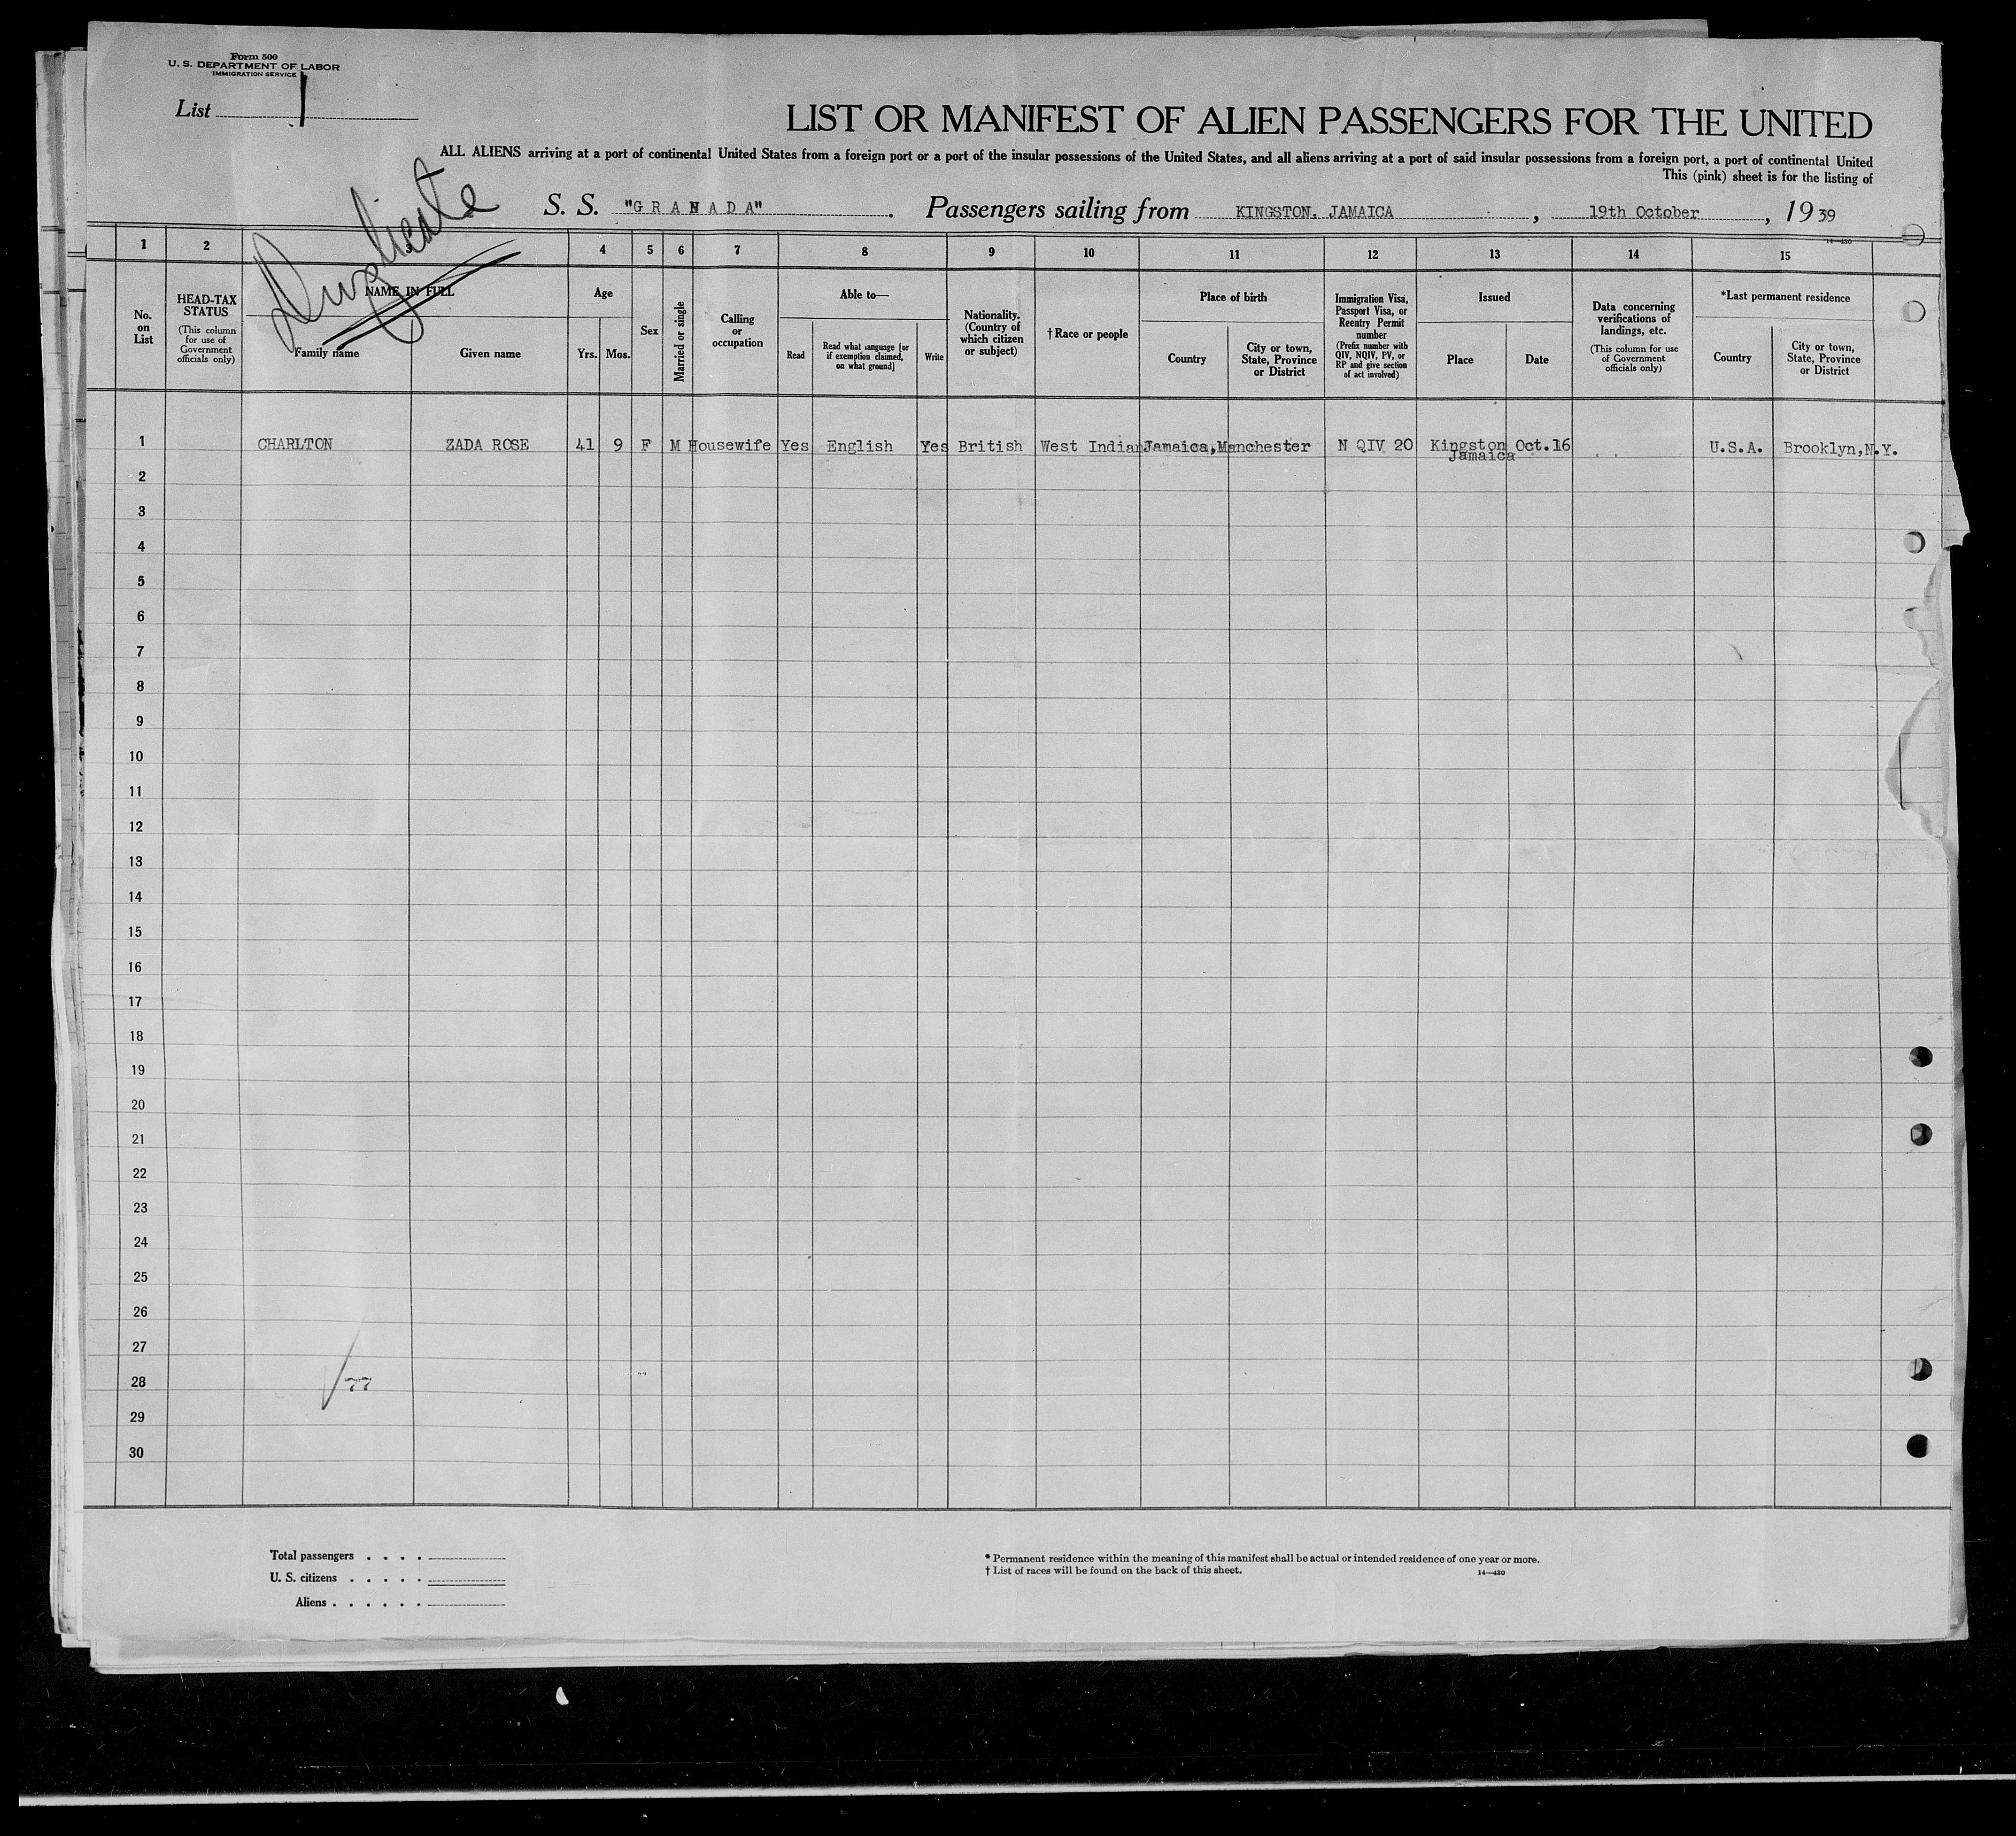 Form 500
U. S. DEPARTMENT OF LABOR
IMMIGRATION SERVICE
List 1
LIST OR MANIFEST OF ALIEN PASSENGERS FOR THE UNITED
ALL ALIENS arriving at a port of continental United States from a foreign port or a port of the insular possessions of the United States, and all aliens arriving at a port of said insular possessions from a foreign port, a port of continental United
This (pink) sheet is for the listing of
Duplicate
S. S. "GRANADA". Passengers sailing from KINGSTON, JAMAICA, 19th October, 1939
14—430
1 2 3 4 5 6 7 8 9 10 11 12 13 14 15
No. on List
HEAD-TAX STATUS
(This column for use of Government officials only)
NAME IN FULL
Family name
Given name
Age
Yrs. Mos.
Sex
Married or single
Calling or occupation
Able to—
Read
Read what language [or if exemption claimed, on what ground]
Write
Nationality. (Country of which citizen or subject)
†Race or people
Place of birth
Country
City or town, State, Province or District
Immigration Visa, Passport Visa, or Reentry Permit number
(Prefix number with QIV, NQIV, PV, or RP and give section of act involved)
Issued
Place
Date
Data concerning verifications of landings, etc.
(This column for use of Government officials only)
*Last permanent residence
Country
City or town, State, Province or District
1 CHARLTON ZADA ROSE 41 9 F M Housewife Yes English Yes British West Indian Jamaica, Manchester N QIV 20 Kingston Jamaica Oct.16 U.S.A. Brooklyn,N.Y.
2
3
4
5
6
7
8
9
10
11
12
13
14
15
16
17
18
19
20
21
22
23
24
25
26
27
28 77
29
30
Total passengers . . . .
U. S. citizens . . . . .
Aliens . . . . . .
* Permanent residence within the meaning of this manifest shall be actual or intended residence of one year or more.
† List of races will be found on the back of this sheet.
14—430